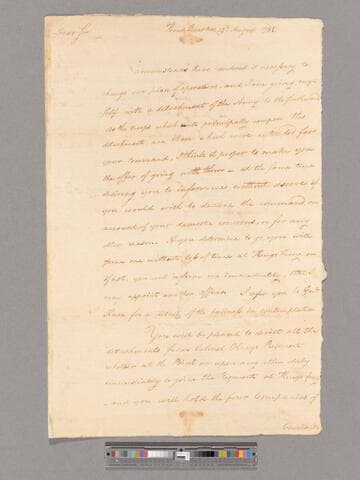 Dear Sir Head Quarters 19th August 1781
Circumstances have rendered it necessary to
change our plan of operations, and I am going myself
with a detachment of the Army to the Southward
As the troops which principally compose this
detachment are those which were intended for
your command, I think it proper to make you
the offer of going with them — at the same time
desiring you to inform me without reserve if
you would wish to decline the command on
account of your domestic concerns or for any
other reason. If you determine to go you will
join me without loss of time at Kings Ferry on
if not, you will inform me immediately, that I
may appoint another officer. I refer you to Genl
Knox for a detail of the business in contemplation
You will be pleased to direct all the
detachments from Colonel Olneys Regiment
whether at the Post or upon any other duty
immediately to join the Regiment at Kings ferry
and you will hold the four Companies of